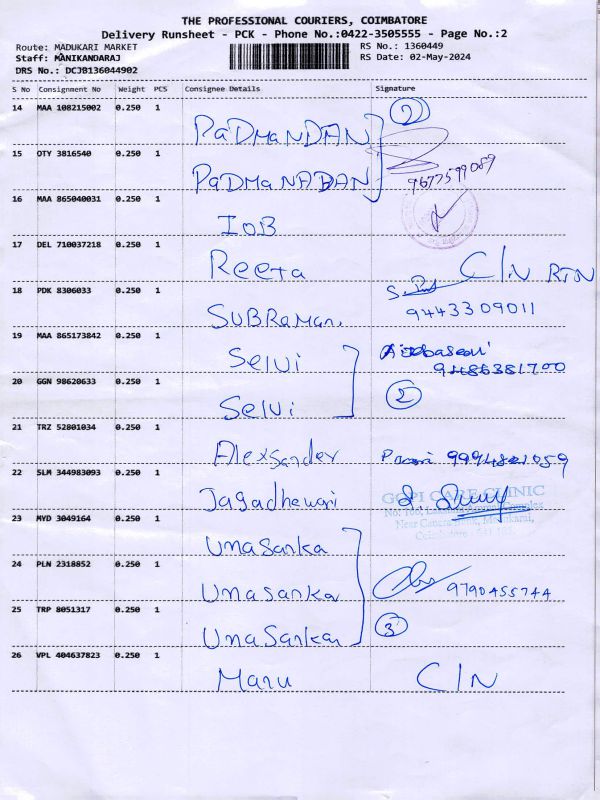 THE PROFESSIONAL COURIERS, COIMBATORE
Delivery Runsheet - PCK - Phone No.:0422-3505555 - Page No.:2
Route: MADUKARI MARKET
RS No.: 1360449
Staff: MANIKANDARAJ
RS Date: 02-May-2024
DRS No.: DCJB136044902
S No Consignment No Weight PCS Consignee Details Signature
14 MAA 108215002 0.250 1 PaDMaNDAN 2
15 OTY 3816540 0.250 1 PaDMaNABAN 9677599089
16 MAA 865040031 0.250 1 IOB
17 DEL 710037218 0.250 1 Reeta C/N RTN
18 PDK 8306033 0.250 1 SUBRaMani 9443309011
19 MAA 865173842 0.250 1 Selvi 9486381700
20 GGN 98620633 0.250 1 Selvi 2
21 TRZ 52801034 0.250 1 Alexsander
22 SLM 344983093 0.250 1 Jagadhewari GOPI CARE CLINIC
23 MYD 3049164 0.250 1 UmaSanka
24 PLN 2318852 0.250 1 Umasankar 9790455744
25 TRP 8051317 0.250 1 UmaSankar 3
26 VPL 404637823 0.250 1 Manu C/N